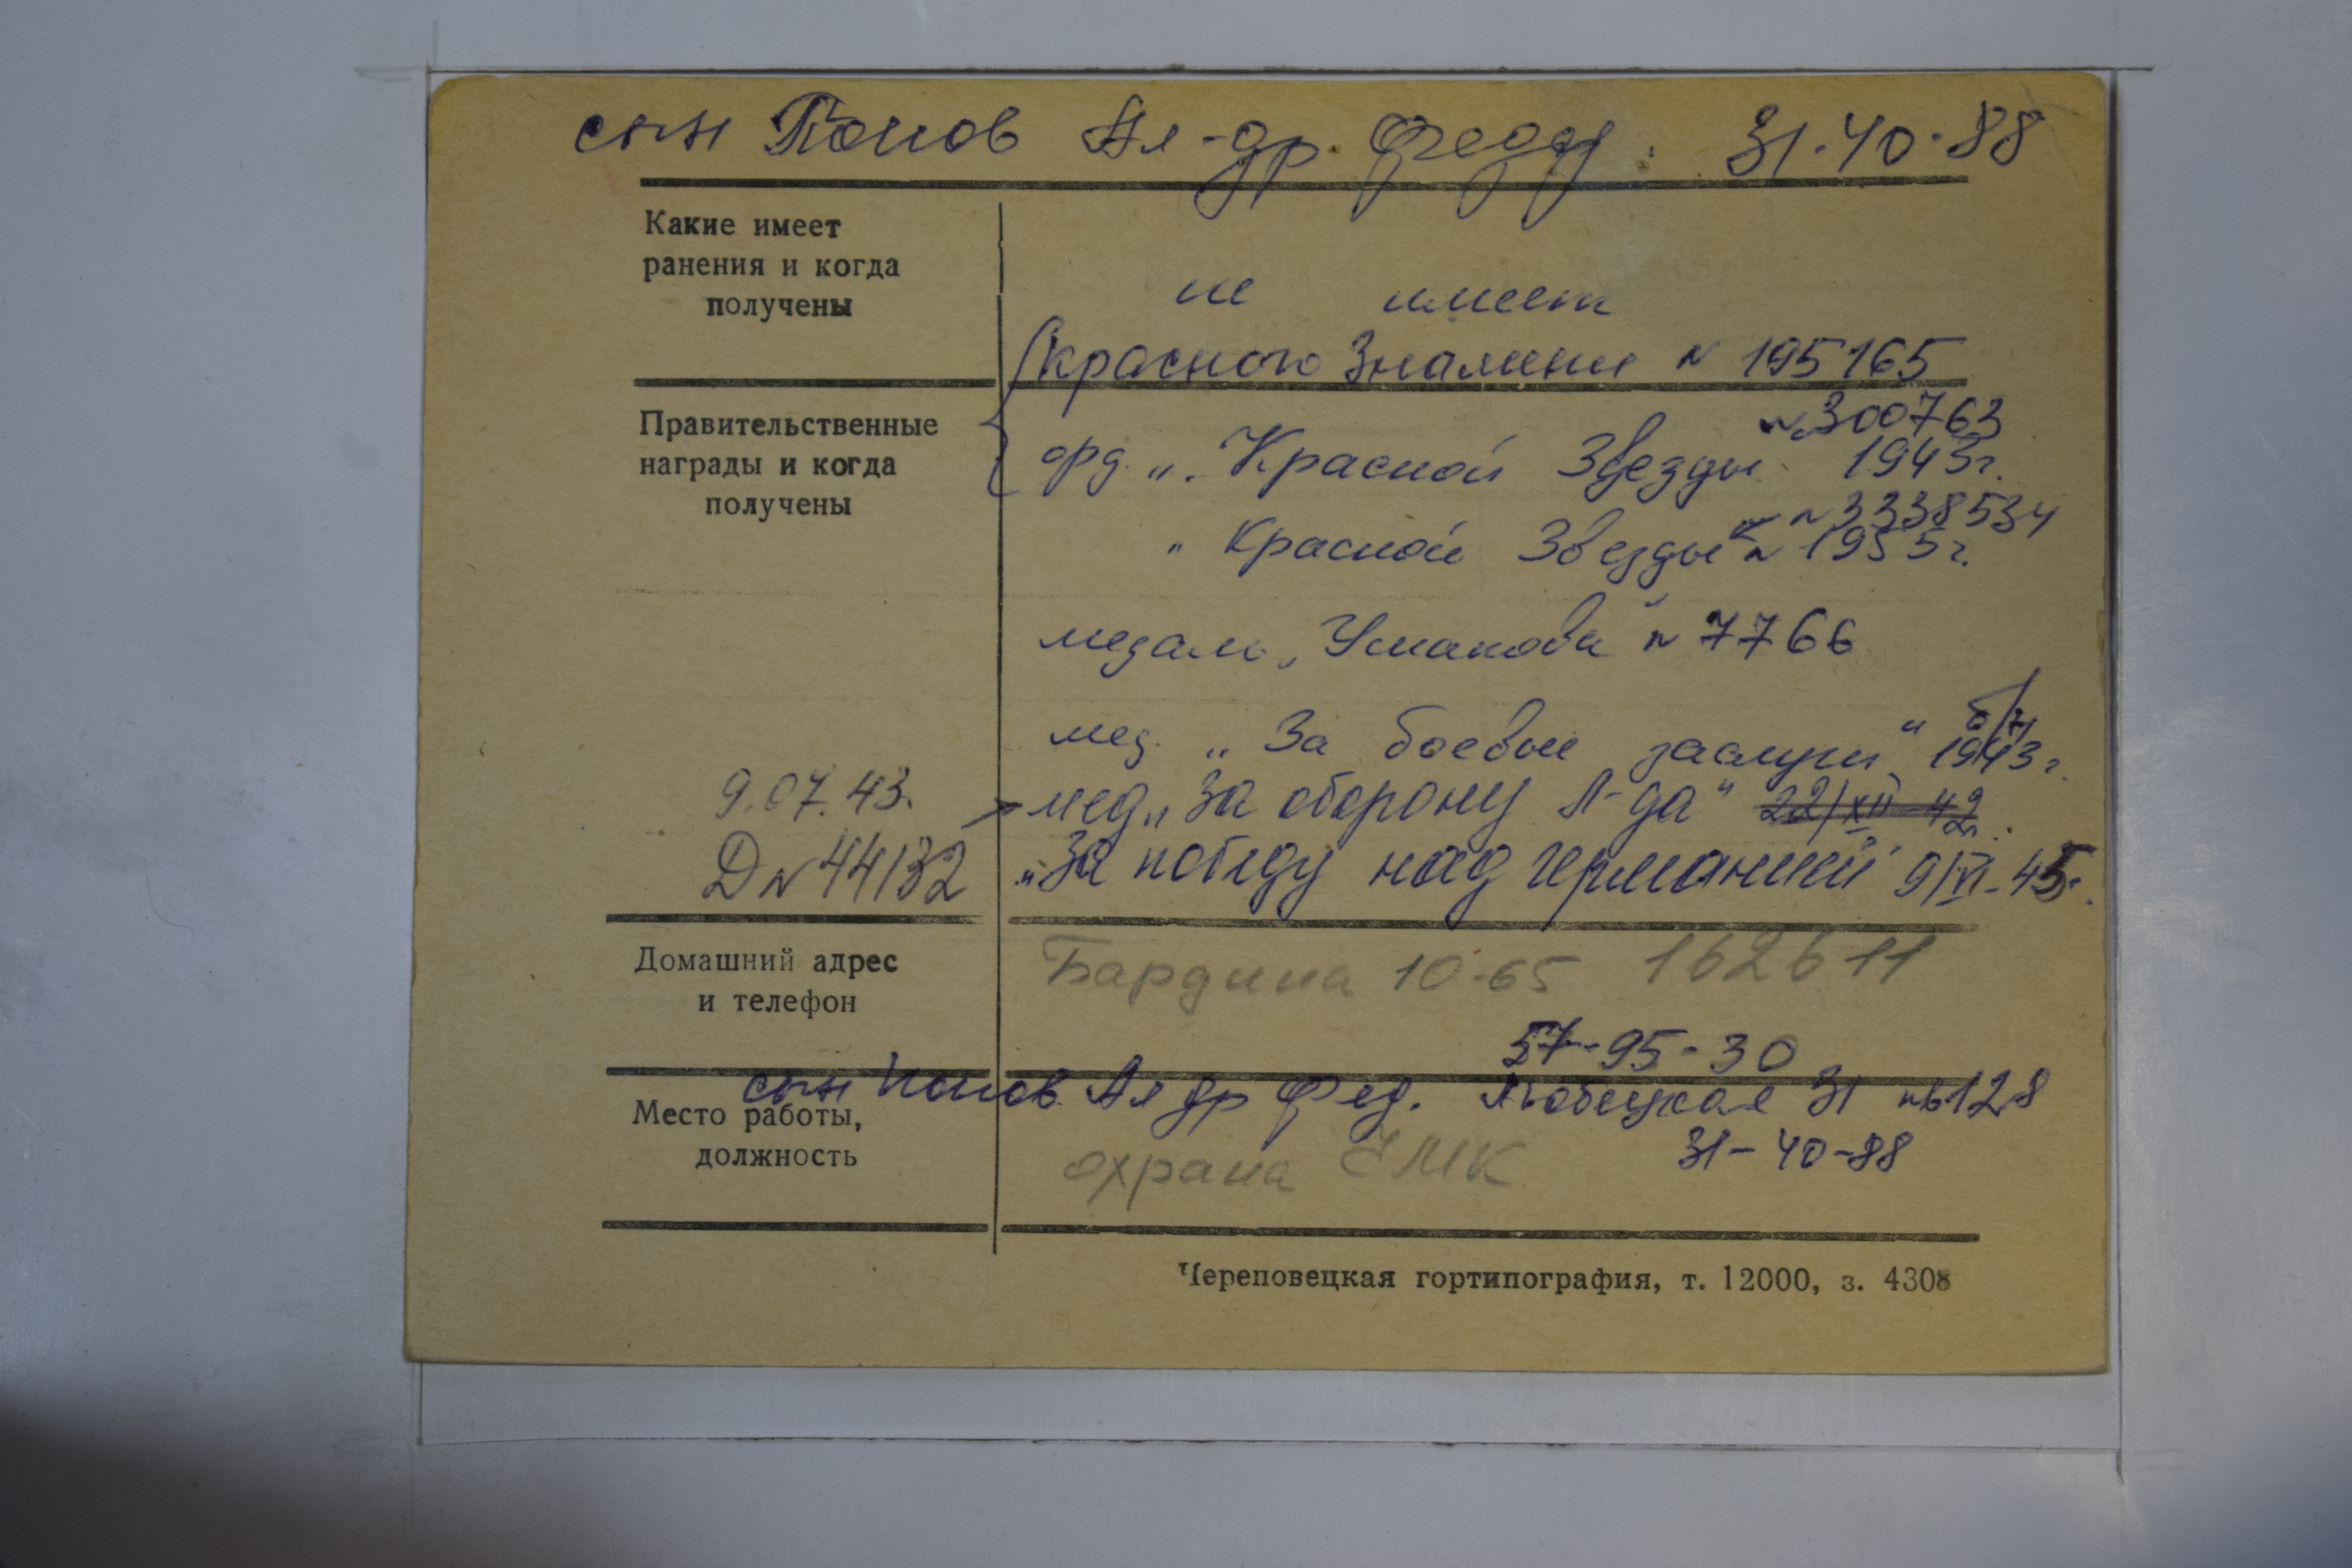 сын Попов Ал-др. Федд. 31-40-88
Какие имеет
ранения и когда
получены
не имеет
Красного Знамени N 195165
Правительственные
награды и когда
получены
N 300763
орд. „Красной Звезды" 1943г.
N 3338534
„Красной Звезды" N 1955г.
медаль „Ушакова" N 7766
б/н
мед. „За боевые заслуги" 1943г.
9.07.43.
мед „За оборону Л-да" 22/XII-42
DN 44132
„За победу над Германией" 9/VI-45г.
Домашний адрес
и телефон
Бардина 10-65 162611
57-95-30
сын Попов Ал др Фед. Любецкая 31 кв 128
Место работы,
должность
охрана ЧМК
31-40-88
Череповецкая гортипография, т. 12000, з. 4308